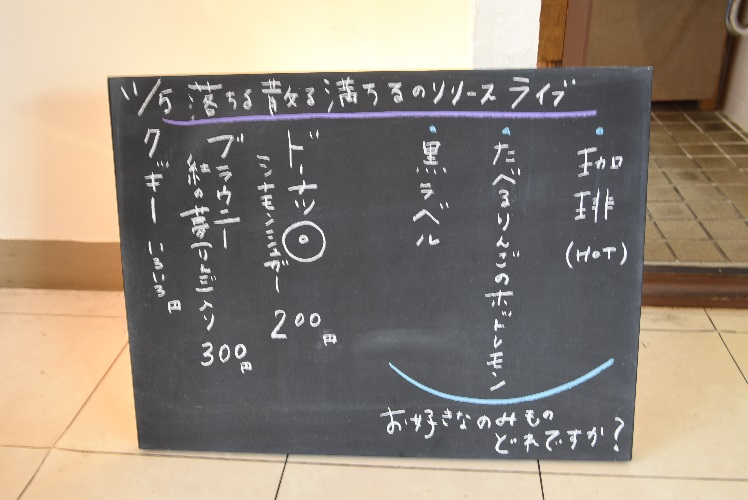 11/5 落ちる散る満ちるのリリースライブ
珈琲
(HOT)
たべるりんごのホットレモン
黒ラベル
お好きなのみもの
どれですか?
ドーナツ
シナモンシュガー
200円
ブラウニー
紅の夢りんご入り
300円
クッキー いろいろ 円